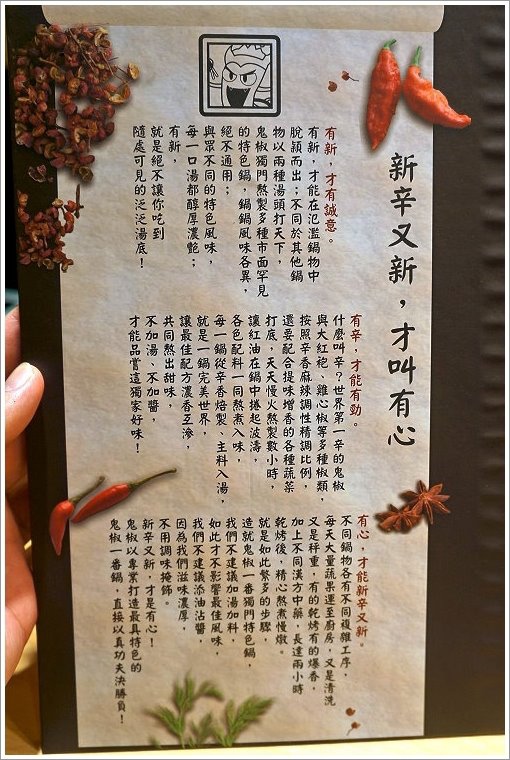 新辛又新，才叫有心
有新，才有誠意。
有新，才能在氾濫鍋物中
脫穎而出；不同於其他鍋
物以兩種湯頭打天下，
鬼椒獨門熬製多種市面罕見
的特色鍋，鍋鍋風味各異，
絕不通用；
與眾不同的特色風味，
每一口湯都醇厚濃艷；
有新，
就是絕不讓你吃到
隨處可見的泛泛湯底！
有辛，才能有勁。
什麼叫辛？世界第一辛的鬼椒
與大紅袍、雞心椒等多種椒類，
按照辛香麻辣調性精調比例，
還要配合提味增香的各種蔬菜
打底，天天慢火熬製數小時，
讓紅油在鍋中捲起波濤，
各色配料一同熬煮入味，
每一鍋從辛香焙製、主料入湯，
就是一鍋完美世界，
讓最佳配方濃香互滲，
共同熬出甜味，
不加湯、不加醬，
才能品嘗這獨家好味！
有心，才能新辛又新。
不同鍋物各有不同複雜工序，
每天大量蔬果運至廚房，又是清洗
又是秤重，有的乾烤有的爆香，
加上不同漢方中藥，長達兩小時
乾烤後，精心熬煮慢燉。
就是如此繁多的步驟，
造就鬼椒一番獨門特色鍋，
我們不建議加湯加料，
如此才不影響最佳風味，
我們不建議添油沾醬，
因為我們滋味濃厚，
不用調味掩飾。
新辛又新，才是有心！
鬼椒以專業打造最具特色的
鬼椒一番鍋，直接以真功夫決勝負！